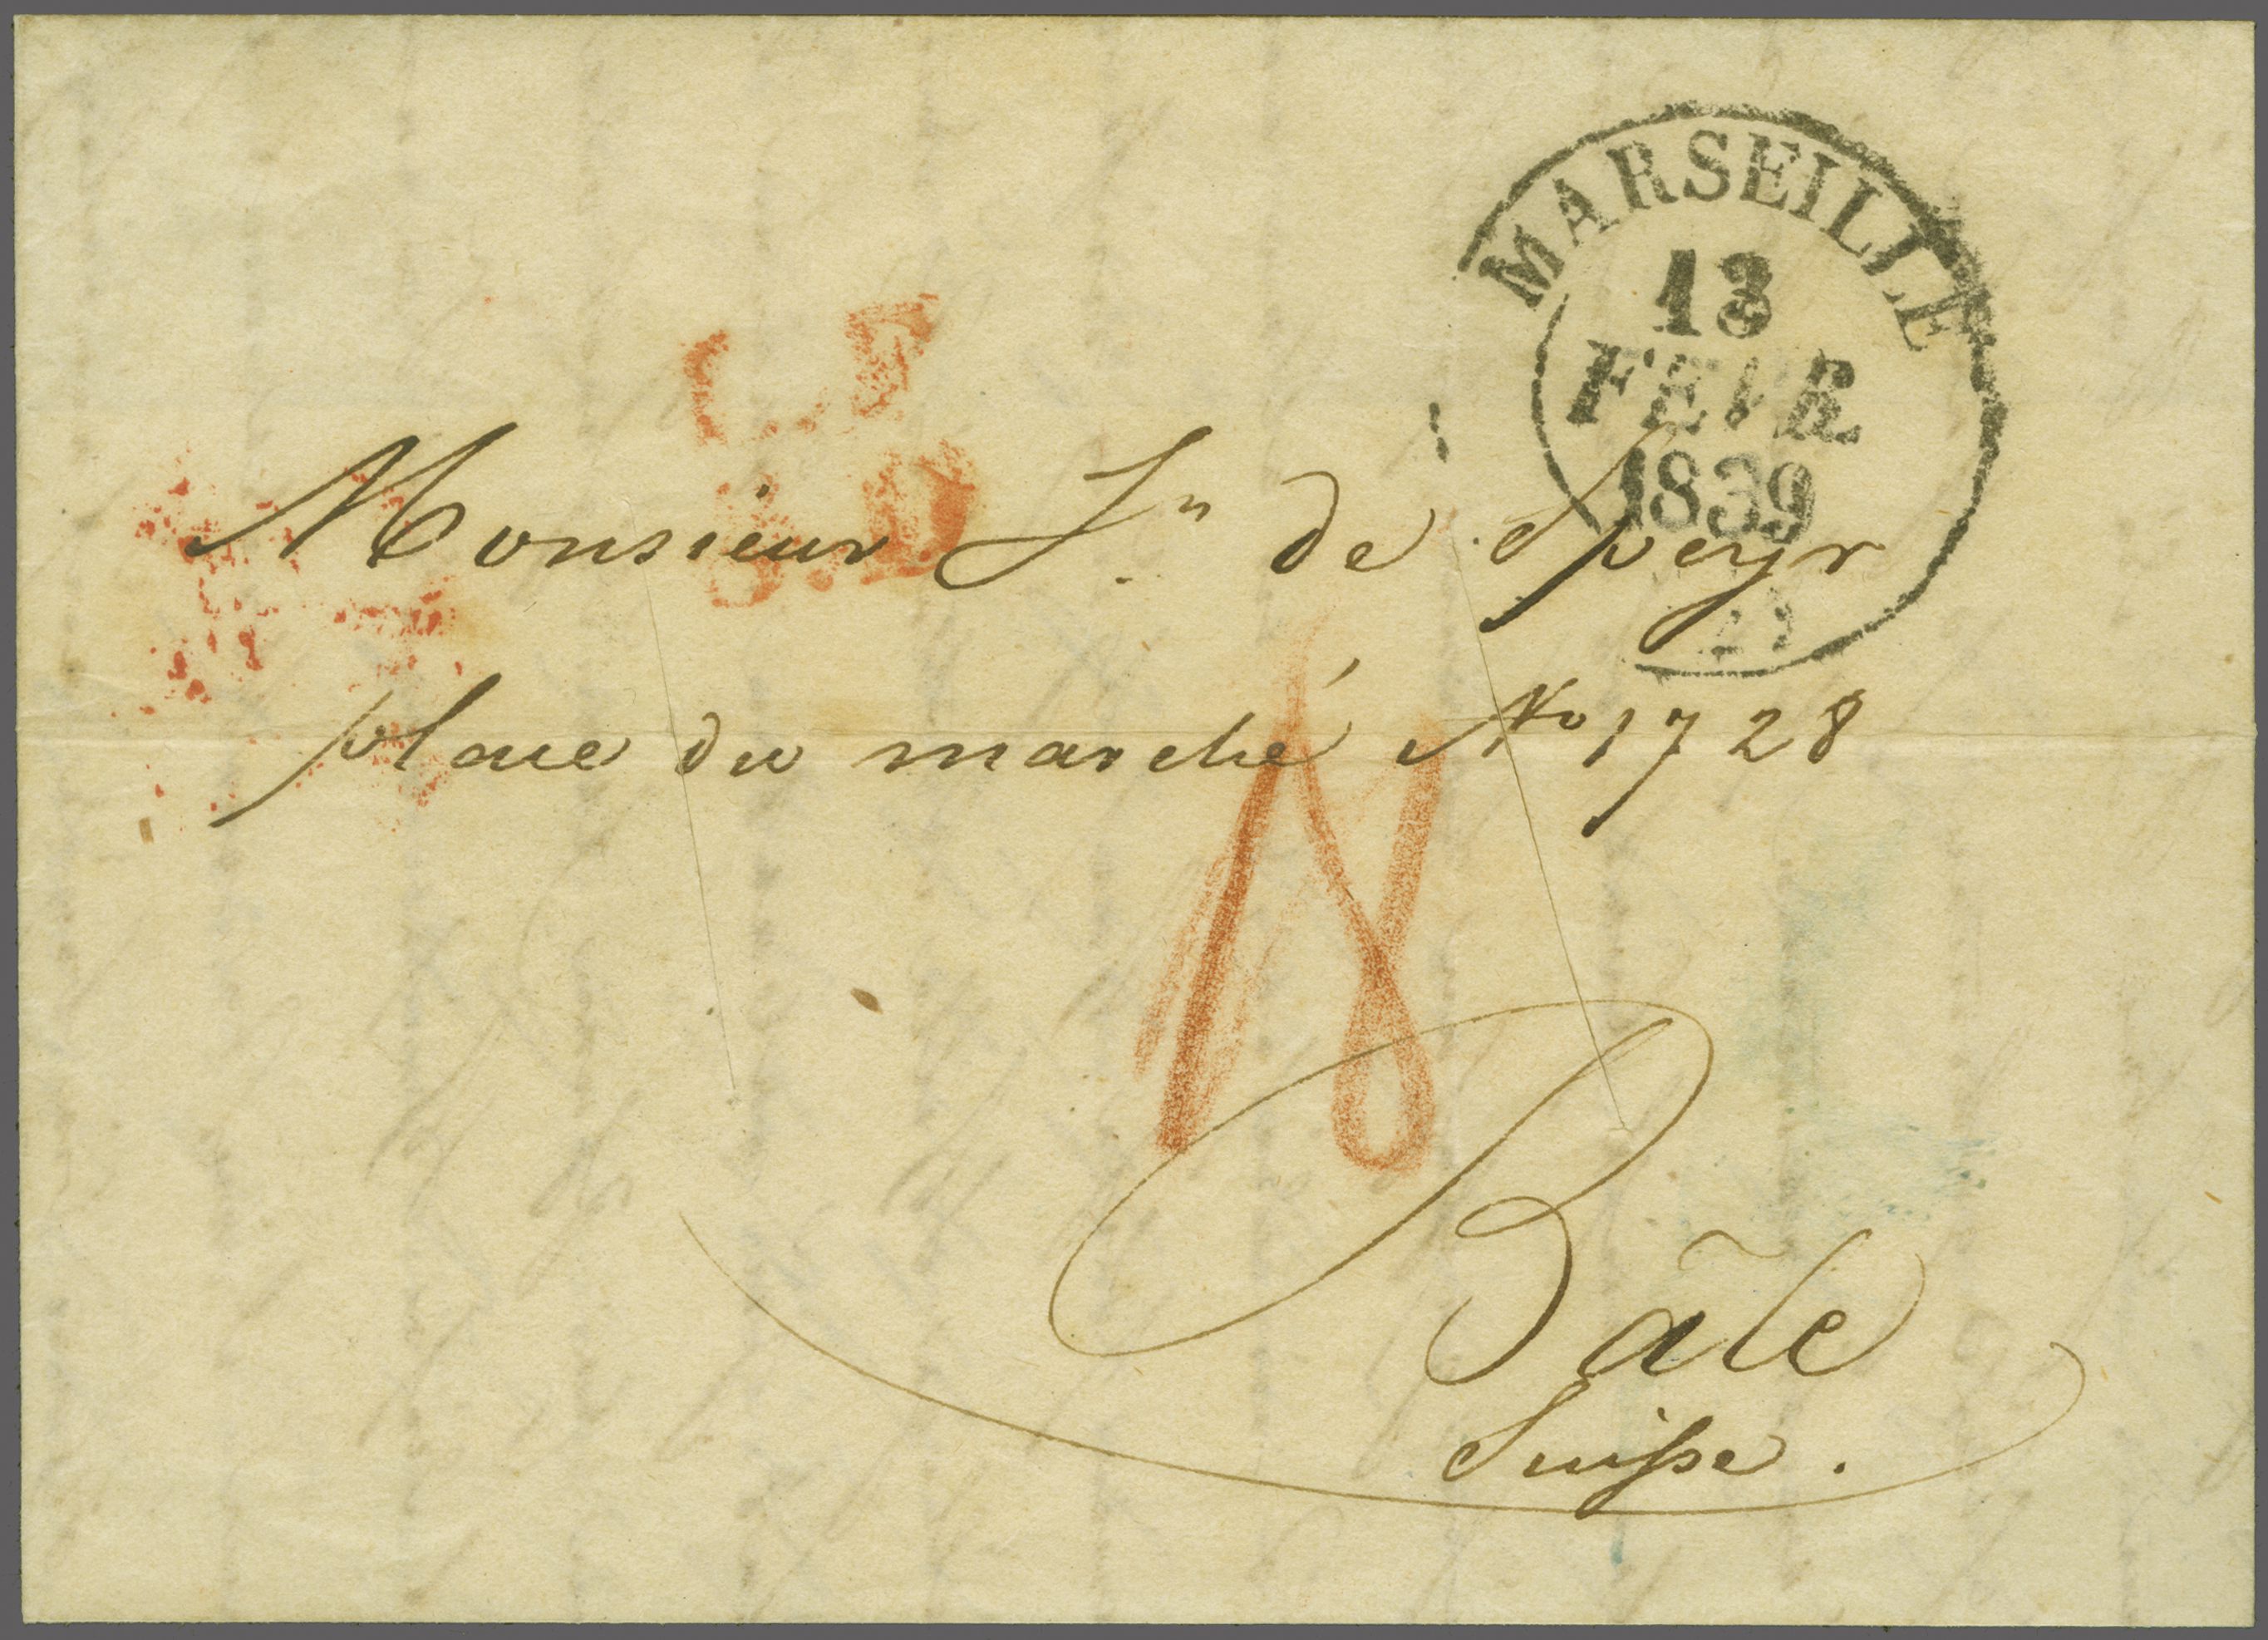 MARSEILLE
13
FEVR
1839
Monsieur Jn de Speyr
place du marché No 1728
18
Bâle
Suisse.